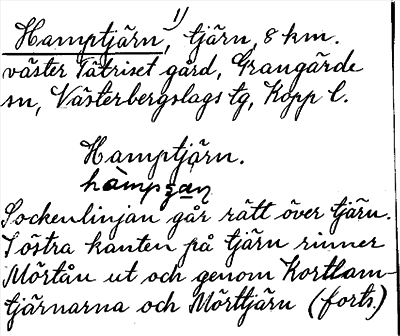 Hamptjärn, 1) tjärn, 8 km.
väster Tätriset gård, Grangärde
sn, Västerbergslags tg, Kopp l.
Hamptjärn.
Sockenlinjan går rätt över tjärn.
I östra kanten på tjärn rinner
Mörtån ut och genom Kortlam-
tjärnarna och Mörttjärn (forts.)